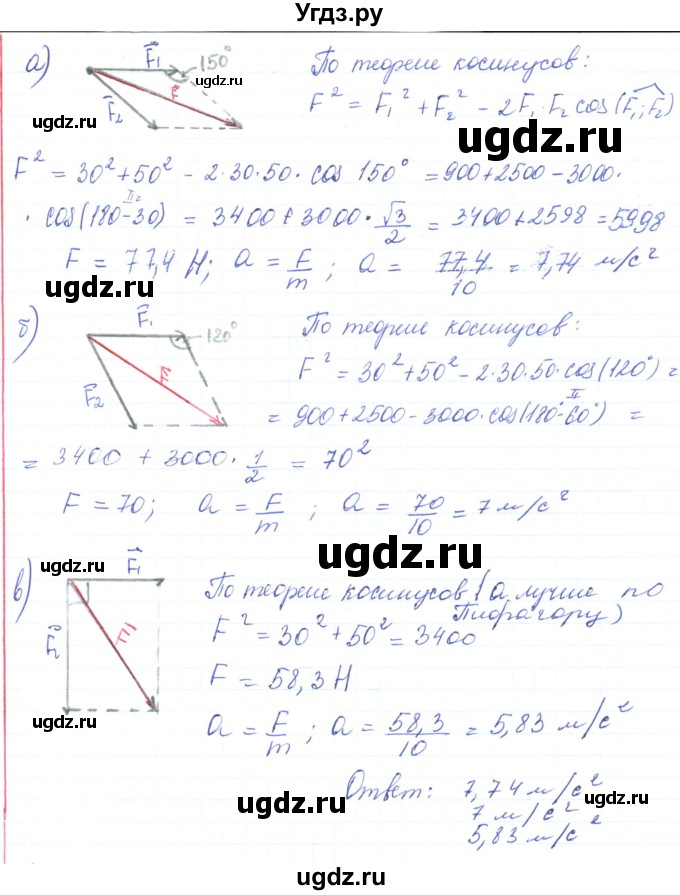 Угдз.ру
а) F₁ 150° По теореме косинусов:
ugdz.ru
F F² = F₁² + F₂² − 2F₁·F₂ cos(F₁;F₂)
F₂
ugdz.ru ugdz.ru
F² = 30² + 50² − 2·30·50 · cos 150° = 900 + 2500 − 3000·
II
· cos(180−30) = 3400 + 3000 · √3/2 = 3400 + 2598 = 5998
F = 77,4 Н; a = F/m ; a = 77,4/10 = 7,74 м/с²
ugdz.ru ugdz.ru
б) F₁ 120° По теореме косинусов:
F² = 30² + 50² − 2·30·50·cos(120°) =
F₂ F II
= 900 + 2500 − 3000·cos(180°−60°) =
= 3400 + 3000 · 1/2 = 70²
F = 70; a = F/m ; a = 70/10 = 7 м/с²
ugdz.ru ugdz.ru
в) F₁ По теореме косинусов (а лучше по
Пифагору)
F₂ F F² = 30² + 50² = 3400
F = 58,3 Н
ugdz.ru
a = F/m ; a = 58,3/10 = 5,83 м/с²
Ответ: 7,74 м/с²
ugdz.ru 7 м/с² ugdz.ru
5,83 м/с²